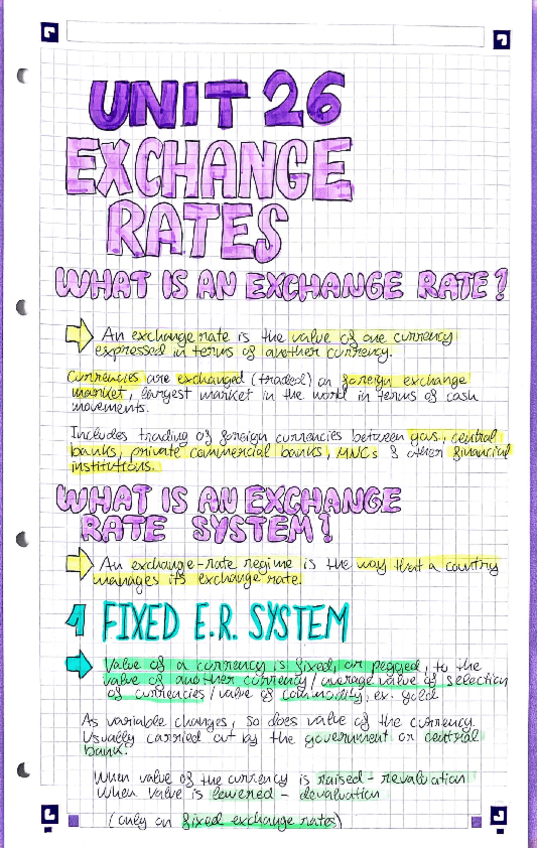 UNIT 26
EXCHANGE
RATES
WHAT IS AN EXCHANGE RATE?
An exchange rate is the value of one currency
expressed in terms of another currency.
Currencies are exchanged (traded) on foreign exchange
market, largest market in the world in terms of cash
movements.
Includes trading of foreign currencies between govs, central
banks, private commercial banks, MNCs & other financial
institutions.
WHAT IS AN EXCHANGE
RATE SYSTEM?
An exchange-rate regime is the way that a country
manages its exchange rate.
1 FIXED E.R. SYSTEM
Value of a currency is fixed, or pegged, to the
value of another currency / average value of selection
of currencies / value of commodity, ex. gold
As variable changes, so does value of the currency.
Usually carried out by the government or central
bank.
When value of the currency is raised - revaluation
When value is lowered - devaluation
(only on fixed exchange rates)